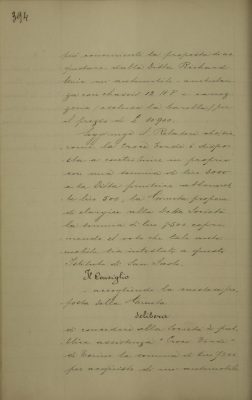 394
per concernente la proposta di a
dalla Ditta Richard
un automobile
con chassis 12 HP e
, esclusa la barella, per
il prezzo di L 10900.
Soggiunge il Relatore che sic
come la Croce Verde è dispo
sta a contribuire in proprio
con una somma di lire 3000
e la Ditta fornitrice
lire 500, la Giunta propone
di elargire alla detta Società
la somma di lire 7500 espri
mendo il voto che tale auto
mobile sia intestato a questo
Istituto di San Paolo.
Il Consiglio
accogliendo la pro
posta della Giunta
delibera
di concedere alla Società di pub
blica assistenza "Croce Verde"
di Torino la somma di lire 7500
per acquisto di un automobile